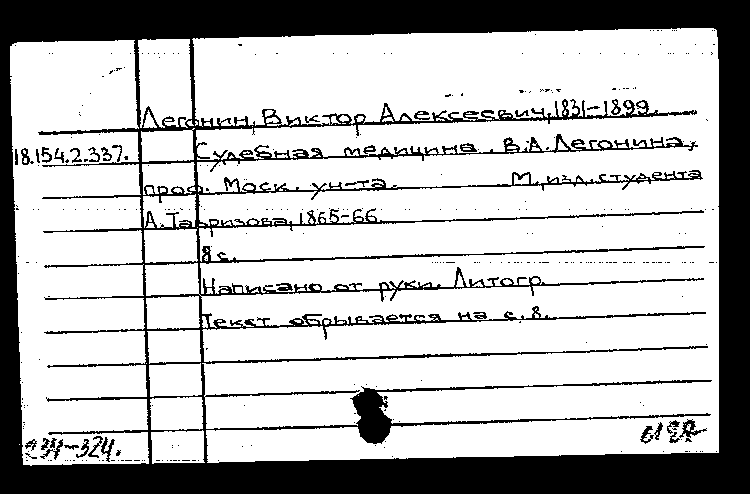 Легонин, Виктор Алексеевич, 1831-1899.
18.154.2.337. Судебная медицина. В.А. Легонина,
проф. Моск. ун-та. М., изд. студента
А. Тавризова, 1865-66.
8 с.
Написано от руки. Литогр.
Текст обрывается на с. 8.
234-324.